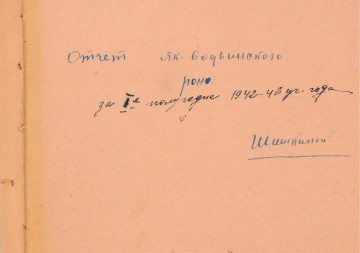 Отчет Як-Бодьинского
роно
за Iе полугодие 1942-43 уч. года
Шишкиной